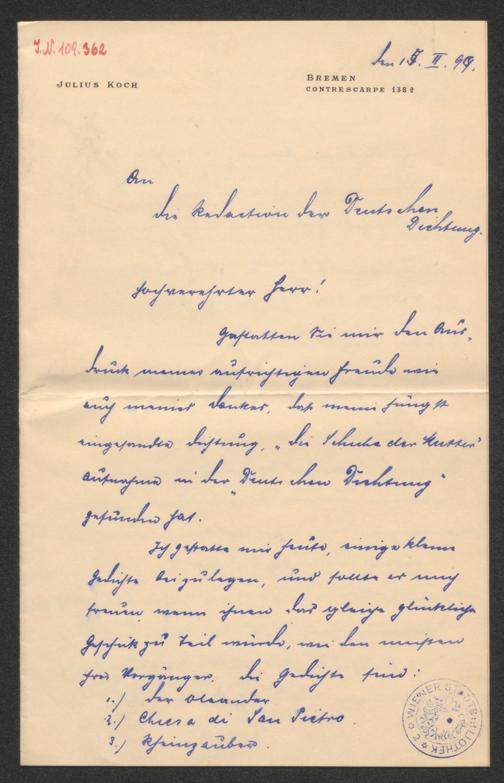 J.N. 109.362
den 15. II. 99.
JULIUS KOCH
BREMEN
CONTRESCARPE 138
An
die Redaction der Deutschen
Dichtung.
Hochverehrter Herr!
Gestatten Sie mir den Aus-
druck meiner aufrichtigen Freude wie
auch meines Dankes, daß meine jüngst
eingesandte Dichtung, "die Schuhe der Mutter"
Aufnahme in der "Deutschen Dichtung"
gefunden hat.
Ich gestatte mir heute, einige kleine
Gedichte beizulegen, und sollte es mich
freuen wenn ihnen das gleiche glückliche
Geschick zu Teil würde, wie den meisten
ihrer Vorgänger. Die Gedichte sind:
1.) Der Oleander
2.) Chiesa di San Pietro.
3.) Rheinzauber.
WIENER STADTBIBLIOTHEK